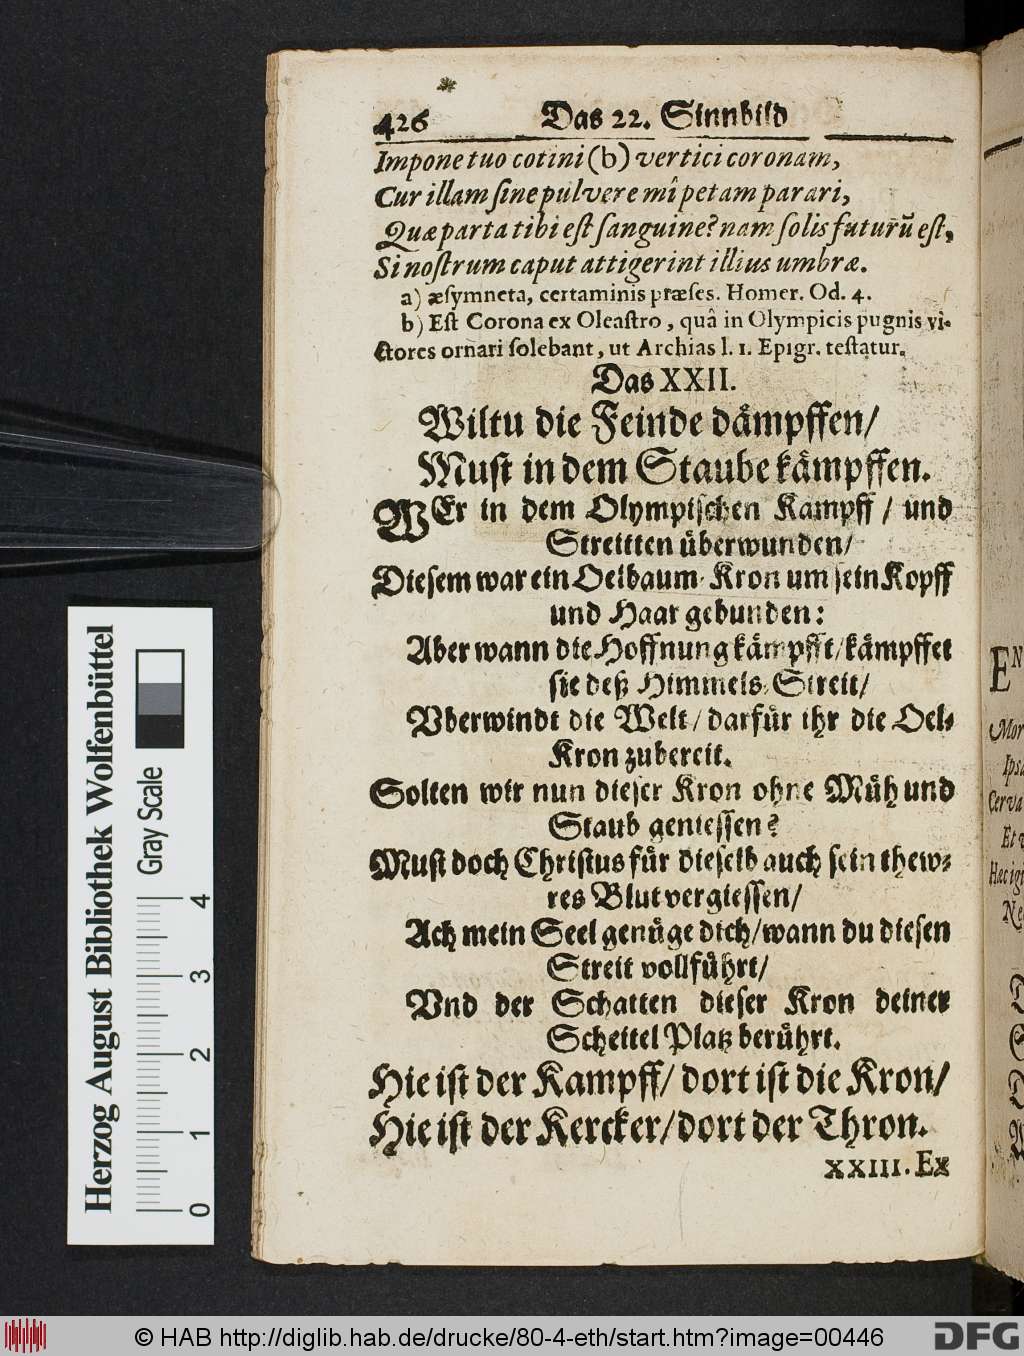 426 Das 22. Sinnbild
Impone tuo cotini (b) vertici coronam,
Cur illam ſine pulvere mî petam parari,
Quæ parta tibi eſt ſanguine? nam ſolis futurũ eſt,
Si noſtrum caput attigerint illius umbræ.
a) æſymneta, certaminis præſes. Homer. Od. 4.
b) Eſt Corona ex Oleaſtro, quâ in Olympicis pugnis vi-
ctores ornari ſolebant, ut Archias l. 1. Epigr. teſtatur.
Das XXII.
Wiltu die Feinde daͤmpffen/
Muſt in dem Staube kaͤmpffen.
WEr in dem Olympiſchen Kampff / und
Streitten uͤberwunden/
Dieſem war ein Oelbaum-Kron um ſein Kopff
und Haar gebunden:
Aber wann die Hoffnung kaͤmpfft/kaͤmpffet
ſie deß Himmels-Streit/
Vberwindt die Welt/darfuͤr ihr die Oel-
Kron zubereit.
Solten wir nun dieſer Kron ohne Muͤh und
Staub genieſſen?
Muſt doch Chriſtus fuͤr dieſelb auch ſein thew-
res Blut vergieſſen/
Ach mein Seel genuͤge dich/wann du dieſen
Streit vollfuͤhrt/
Vnd der Schatten dieſer Kron deiner
Scheitel Platz beruͤhrt.
Hie iſt der Kampff/dort iſt die Kron/
Hie iſt der Kercker/dort der Thron.
XXIII. Ex
EN
Mor
Ipſa
Cerva
Et v
Hæc igi
Ne
Herzog August Bibliothek Wolfenbüttel
Gray Scale
0 1 2 3 4
© HAB http://diglib.hab.de/drucke/80-4-eth/start.htm?image=00446
DFG